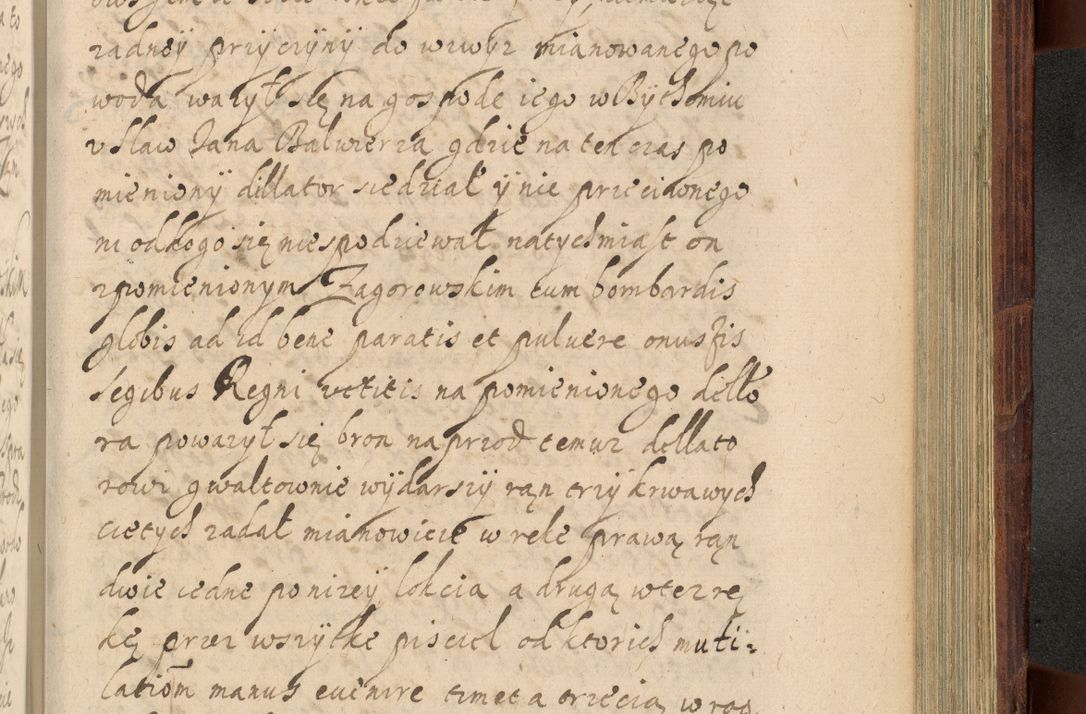 zadneÿ przÿczÿnÿ do wzwÿz mianowanego po
woda wazył się na gospode iego w Bÿthomiu
v Slaw Jana Balwierza gdzie na ten czas po
mienionÿ dillator siedział ÿ nie przeciwnego
ni od kogo się nie spodziewał natychmiast on
z pomienionym Zagorowskim cum bombardis
globis ad id bene paratis et puluere onustis
legibus Regni vetitis na pomienionego dello
ra powazył się bron naprzod temuz dellato
rowi gwałtownie wÿdarszÿ ran trzÿ krwawych
cietych zadał mianowicie w reke prawą ran
dwie iedne ponizeÿ lokcia a drugą w tez rę
kę przez wszÿtke piesciel od ktorich muti-
lationm manus euenire timet a trzecią w rag